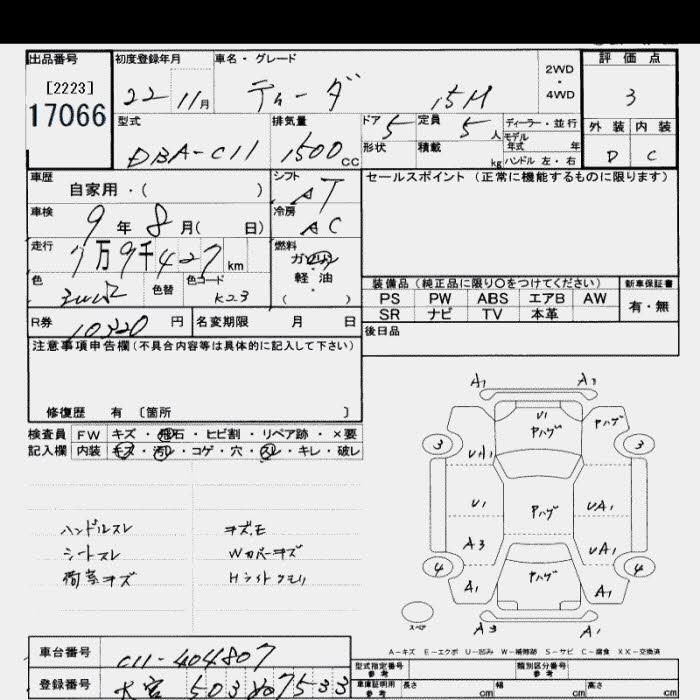 出品番号 初度登録年月 車名・グレード 2WD・4WD 評価点
[2223] 22 11月 ティーダ 15M 3
17066 型式 排気量 ドア 5 定員 5人 ディーラー・並行 外装 内装
DBA-C11 1500cc 形状 積載 kg モデル年式 年 ハンドル 左・右 D C
車歴 自家用・( ) シフト AT セールスポイント (正常に機能するものに限ります)
車検 9年 8月( 日) 冷房 AC
走行 7万9千427km 燃料 ガソリン・軽油 ( )
色 色替 色コード K23 装備品 (純正品に限り○をつけてください) 新車保証書
PS PW ABS エアB AW 有・無
SR ナビ TV 本革
R券 10320円 名変期限 月 日 後日品
注意事項申告欄(不具合内容等は具体的に記入して下さい)
修復歴 有 〔箇所 〕
検査員 FW キズ・飛石・ヒビ割・リペア跡・×要
記入欄 内装 キズ・汚レ・コゲ・穴・スレ・キレ・破レ
ハンドルスレ キズ,モ
シートスレ Wカバーキズ
荷室キズ Hライトクモリ
A1 A3
U1 Pハゲ Pハゲ
3 3
UA1
U1 Pハゲ UA1
A3 UA1
4 Pハゲ 4
A1 A1
スペア A3 A1
A-キズ E-エクボ U-凹み W-補修跡 S-サビ C-腐食 XX-交換済
車台番号 C11-404807 型式指定番号 類別区分番号
登録番号 大宮 503 7533 車庫証明用参考 長さ cm 幅 cm 高さ cm